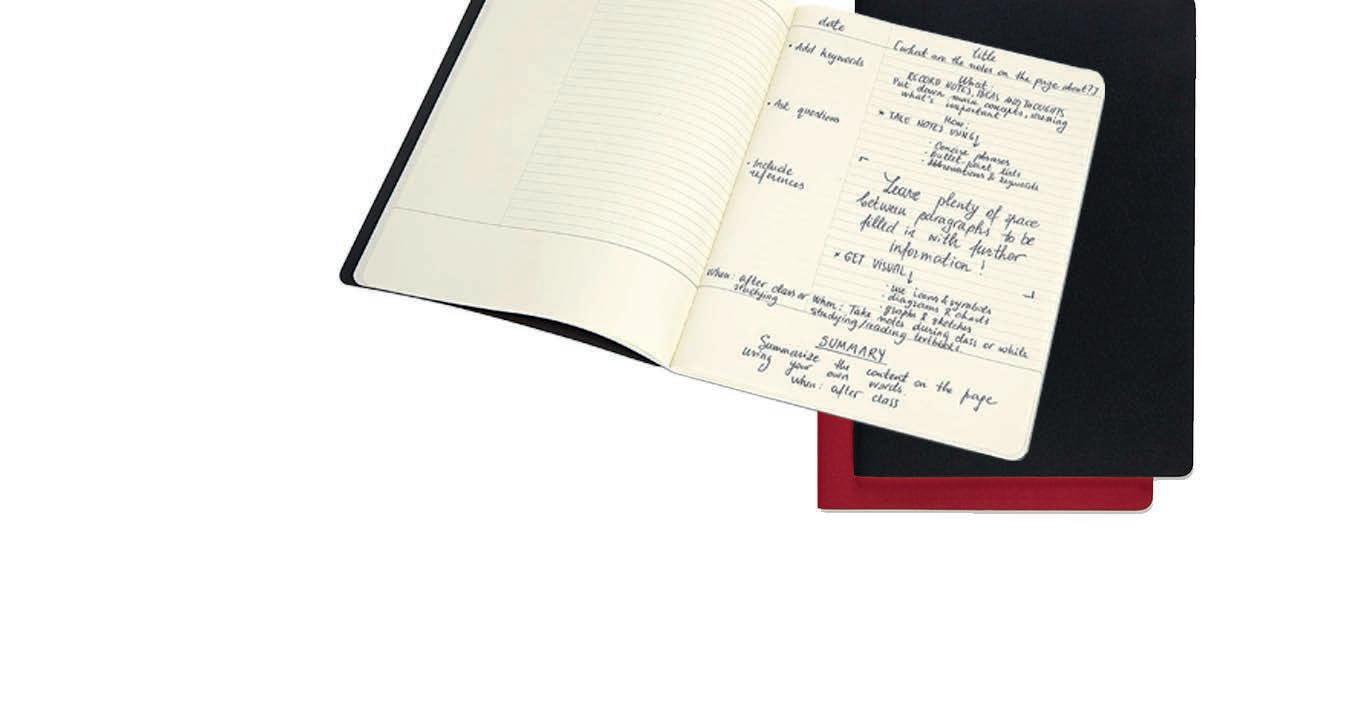 date
• Add keywords
• Ask questions
• Include
references
when: after class or
studying
title
[what are the notes on the page about?]
What:
RECORD NOTES, IDEAS AND THOUGHTS
Put down main concepts, showing
what's important
How:
* TAKE NOTES USING↓
• Concise phrases
• bullet-point lists
• Abbreviations & keywords
Leave plenty of space
between paragraphs to be
filled in with further
information !
* GET VISUAL↓
• use icons & symbols
• diagrams & charts
• graphs & sketches
When: Take notes during class or while
studying/reading textbooks.
SUMMARY
Summarize the content on the page
using your own words.
when: after class